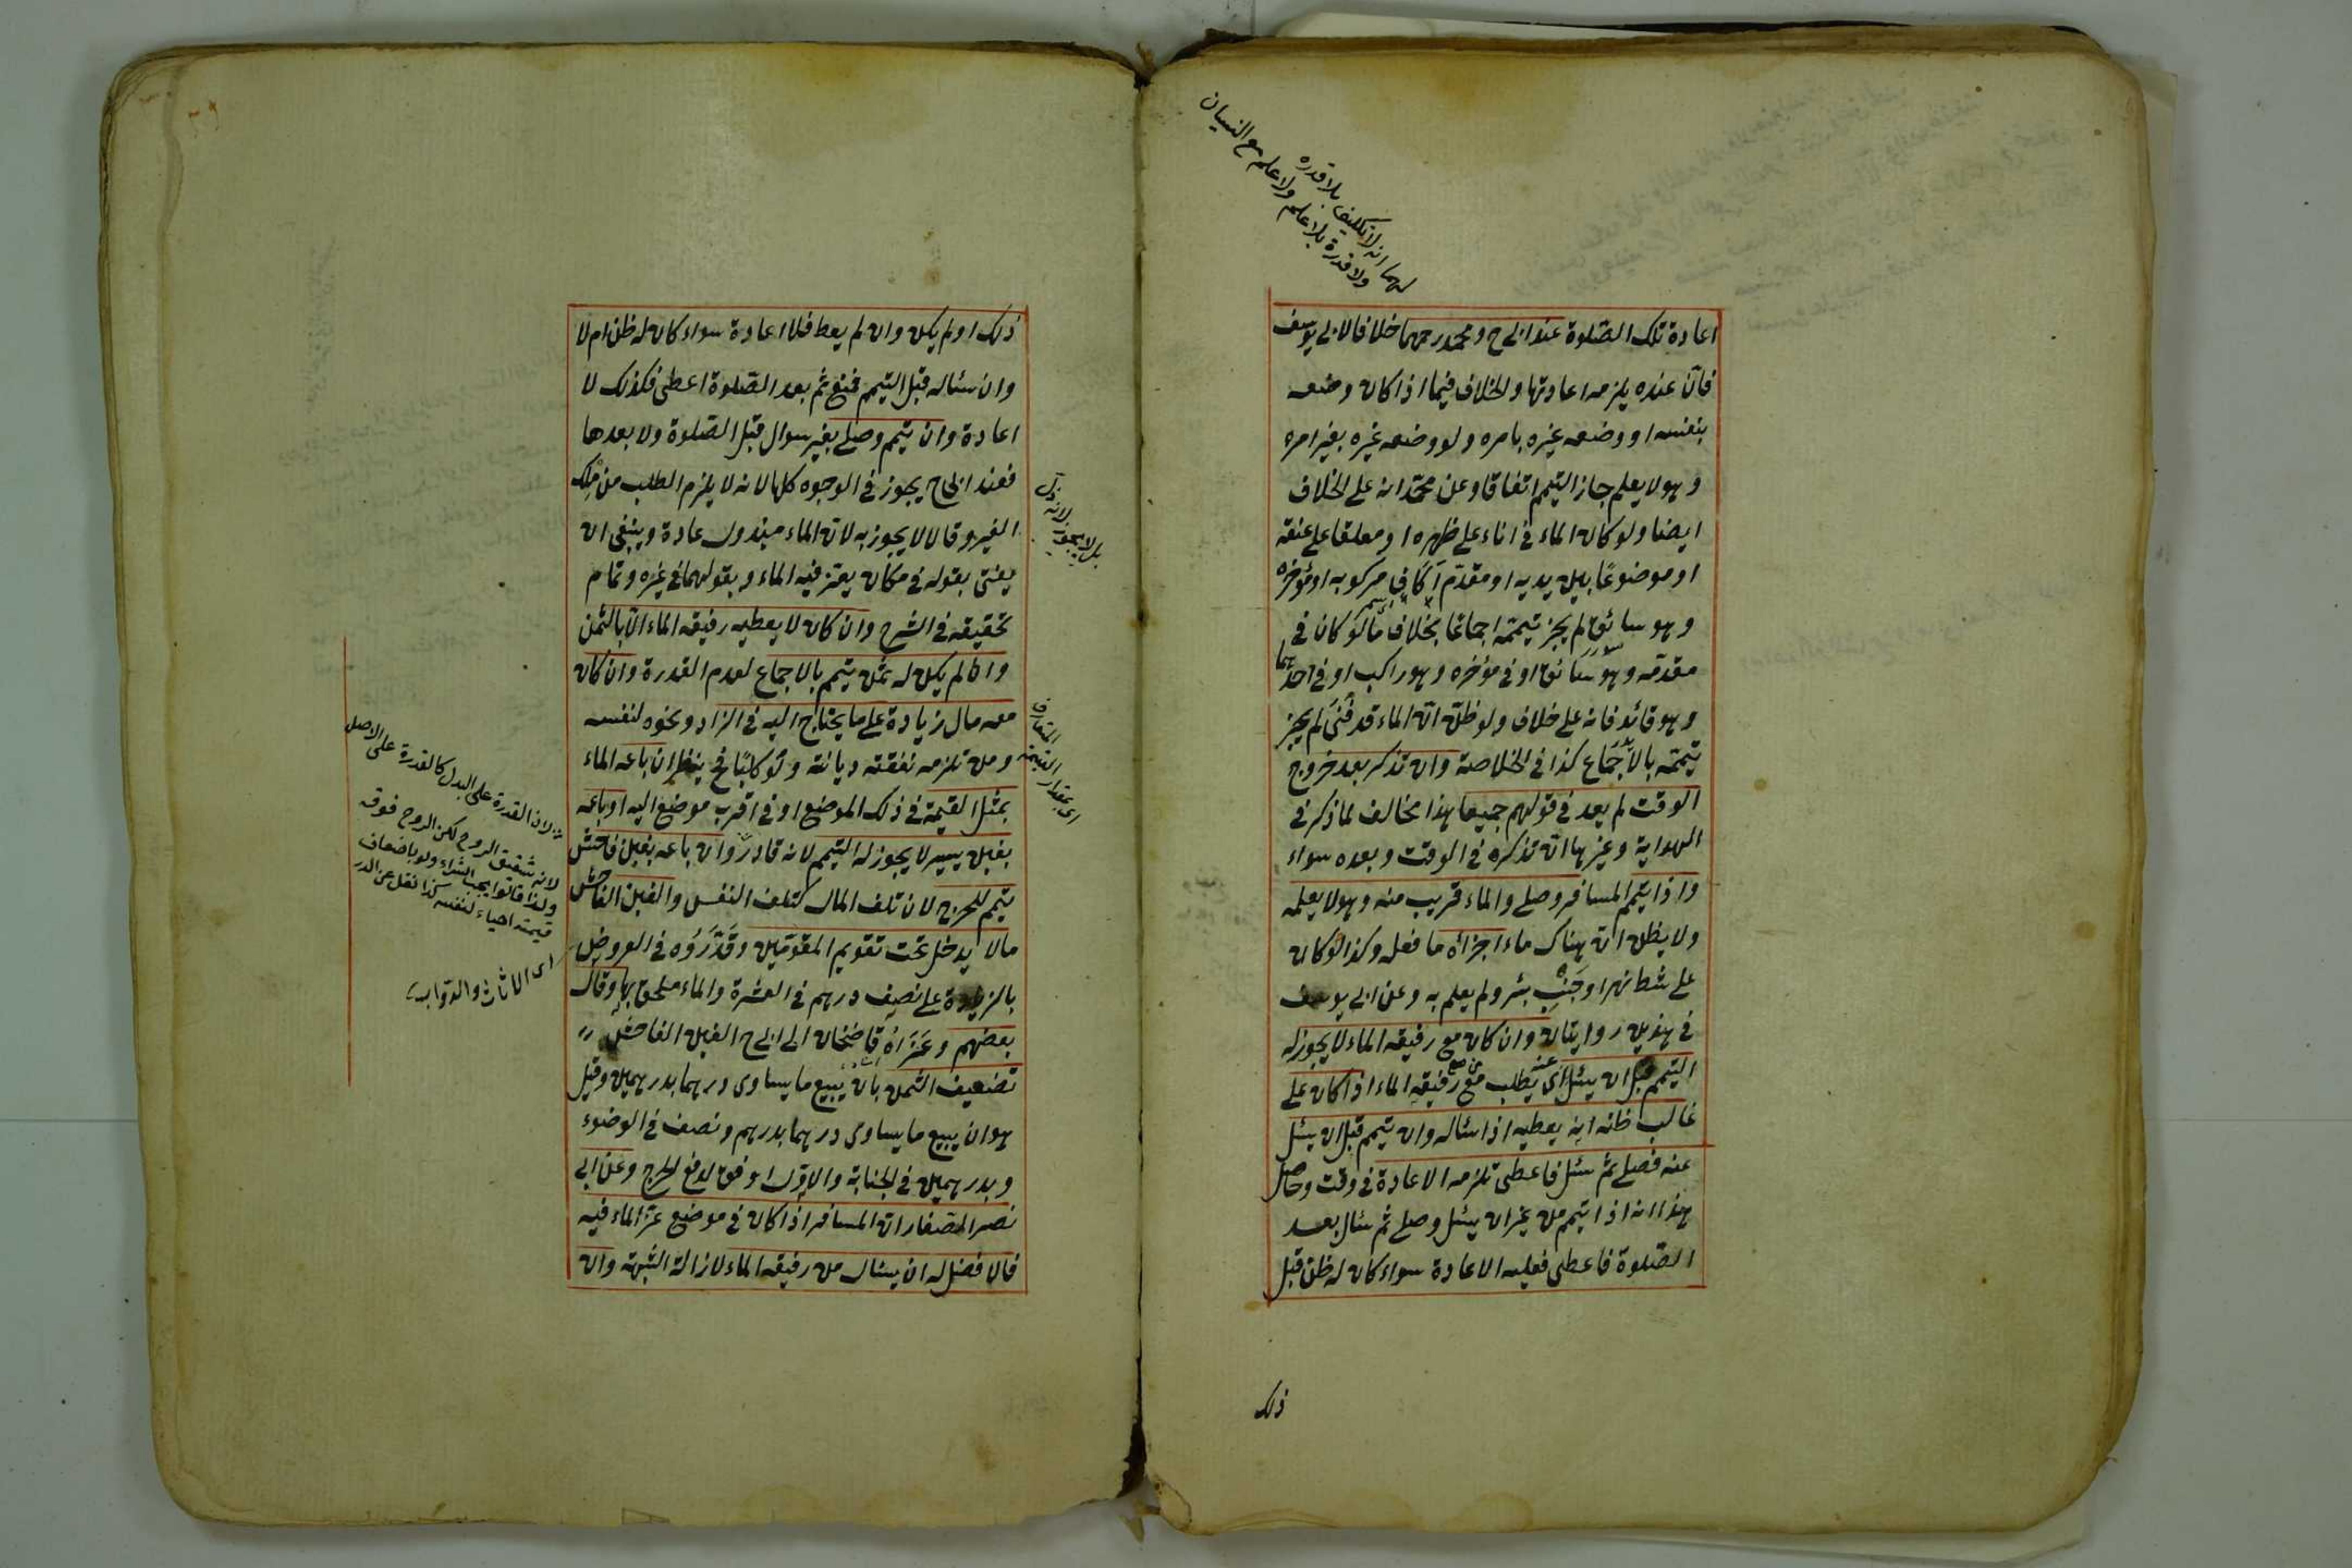 لهما انه لا تكليف بلا قدرة
ولا قدرة بلا علم ولا علم مع النسيان
اعادة تلك الصّلوة عند ابى ح ومحمد رحمهما خلافا لابى يوسف
فانّ عنده يلزمه اعادتها والخلاف فيما اذا كان وضعه
بنفسه او وضعه غيره بامره ولو وضعه غيره بغير امره
وهو لا يعلم جاز التيمم اتفاقا وعن محمّد انه على الخلاف
ايضا ولو كان الماء فى اناء على ظهره او معلقا على عنقه
او موضوعًا بين يديه او مقدّم اكاف مركوبه او مؤخره
وهو سائق لم يجز تيممه اجماعا بخلاف ما لو كان فى
مقدّمه وهو سائق او فى مؤخره وهو راكب او فى احدهما
وهو قائد فانه على خلاف ولو ظنّ انّ الماء قد فَنِىَ لم يجز
تيممه بالاجماع كذا فى الخلاصة وان تذكر بعد خروج
الوقت لم يعد فى قولهم جميعا هذا مخالف لما ذكر فى
الهداية وغيرها انّ تذكره فى الوقت وبعده سواء
واذا تيمم المسافر وصلى والماء قريب منه وهو لا يعلمه
ولا يظن انّ هناك ماء اجزأه ما فعل وكذا لو كان
على شط نهر او جَنْبِ بئر ولم يعلم به وعن ابى يوسف
فى هذين روايتان وان كان مع رفيقه الماء لا يجوز له
التيمم قبل ان يسئل اى يطلب رفيقه الماء اذا كان على
غالب ظنه انه يعطيه اذا سئاله وان تيمم قبل ان يسئل
عنه فصلى ثم سئل فاعطى تلزمه الاعادة فى وقت وحاصل
هذا انه اذا تيمم من غير ان يسئل وصلى ثم سئال بعد
الصّلوة فاعطى فعليه الاعادة سواء كان له ظن قبل
ذلك
ذلك او لم يكن وان لم يعط فلا اعادة سواء كان له ظن ام لا
وان سئاله قبل التيمم فمنع ثم بعد الصّلوة اعطى فكذلك لا
اعادة وان تيمم وصلى بغير سوال قبل الصّلوة ولا بعدها
فعند ابى ح يجوز فى الوجوه كلها لانه لا يلزم الطلب من ملك
الغير وقالا لا يجوز به لانّ الماء مبذول عادة وينبغى ان
يفتى بقوله فى مكان يعتز فيه الماء وبقولهما فى غيره وتمام
تحقيقه فى الشرح وان كان لا يعطيه رفيقه الماء الّا بالثمن
وان لم يكن له ثمن تيمم بالاجماع لعدم القدرة وان كان
معه مال زيادة على ما يحتاج اليه فى الزاد ونحوه لنفسه
ومن تلزمه نفقته ديانة ولو كلبًا فح ينظر ان باعه الماء
بمثل القيمة فى ذلك الموضع او فى اقرب موضع اليه او باعه
بغبن يسير لا يجوز له التيمم لانه قادر وان باعه بغبن فاحش
تيمم للحرج لان تلف المال كتلف النفس والغبن الفاحش
مالا يدخل تحت تقويم المقوّمين وقَدَّرَوُه فى العروض
بالزيادة على نصيف درهم فى العشرة والماء ملحق بها وقال
بعضهم وعَزَاهُ قاضخان الى ابى ح الغبن الفاحش
تضعيف الثمن بان يبيع ما يساوى درهما بدرهمين وقيل
هو ان يبيع ما يساوى درهما بدرهم ونصف فى الوضوء
وبدرهمين فى الجنابة والاوّل اوفق لدفع الحرج وعن ابى
نصر الصفار انّ المسافر اذا كان فى موضع عزّ الماء فيه
فالافضل له ان يسئال من رفيقه الماء لازالة الشبهة وان
بل لا يجوز لانه ذلّ
لان القدرة على البدل كالقدرة على الاصل
لانه شقيق الروح لكن الروح فوقه
ولذا قالوا يجب الشراء ولو باضعاف
قيمته احياء لنفسه كذا نقل عن الدر
اى الاثاث والدوّاب